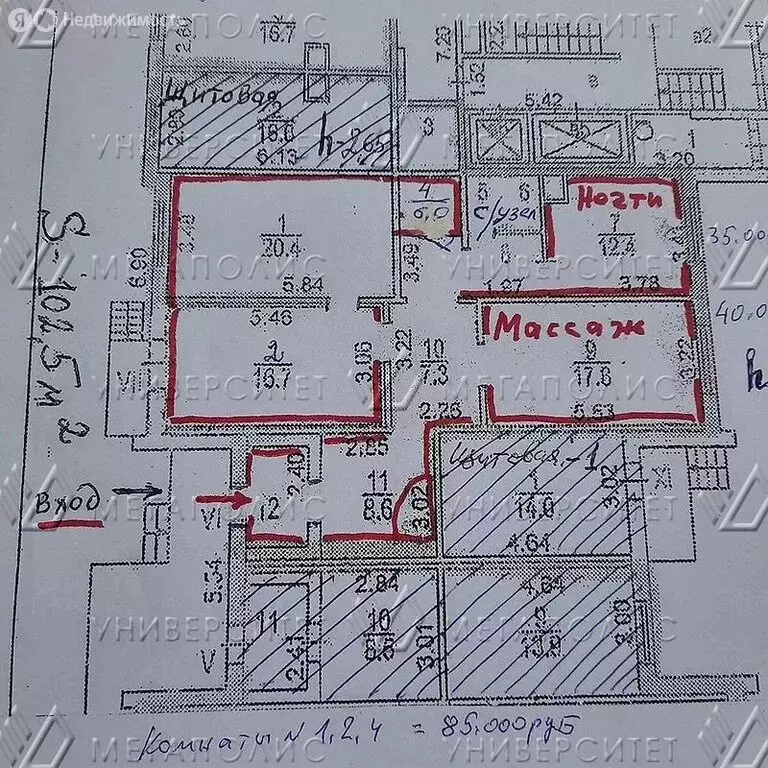 Я Недвижимость
16.7
2.80
7.20
1.53
2.2
в2
Щитовая
2
16.0
2.90
6.13
h-2,65
5.42
3.20
1
S-101,5 м2
6.90
1
20.4
3.48
5.84
4
6,0
3.49
5 6
с/узел
8
1.87
Ногти
7
12.4
3.78
35.00
40.0
5.46
2
16.7
3.06
3.22
10
7.3
2.26
Массаж
9
17.6
3.23
5.63
VII
Вход
VI
12
2.40
2.85
11
8.6
3.02
Щитовая-1
1
14.0
3.02
4.64
5.54
V
11
2.41
2.84
10
3.01
4.64
3.00
Комнаты N 1,2,4 = 85.000руб
УНИВЕРСИТЕТ
МЕГАПОЛИС